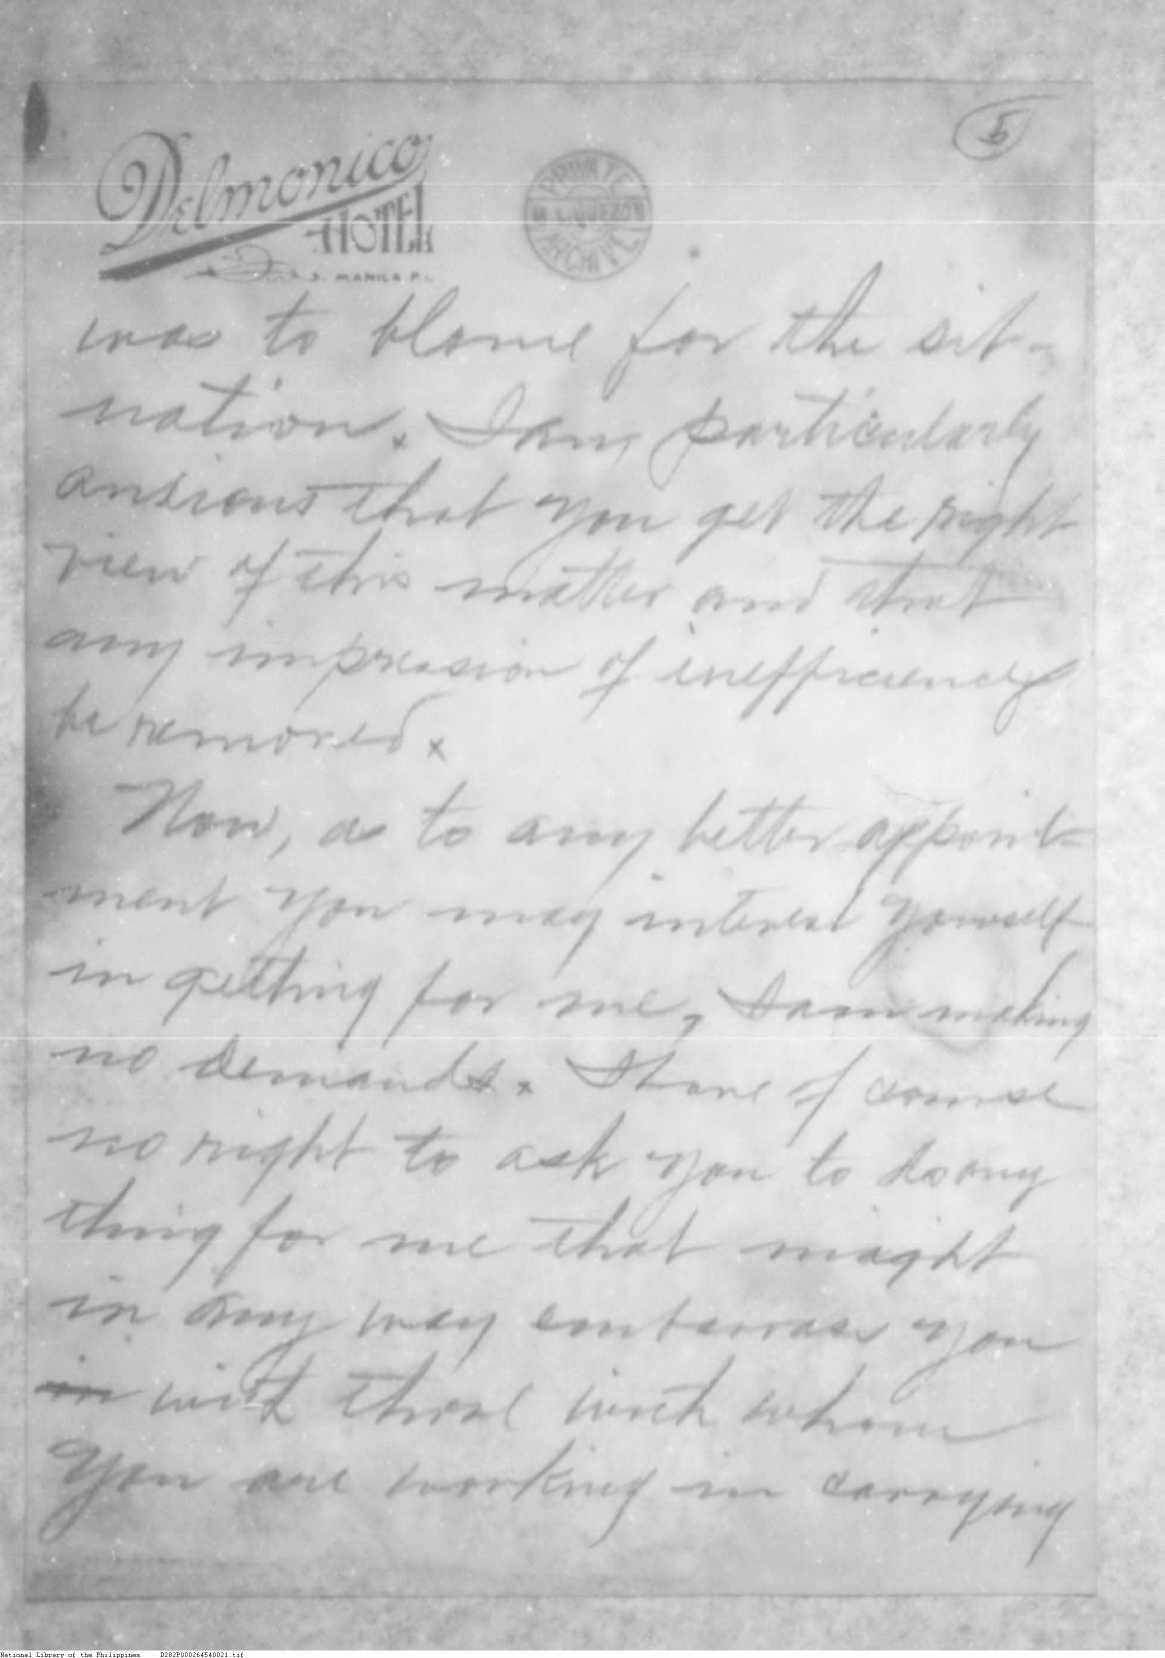 5
Delmonico
HOTEL
MANILA P.I.
PRIVATE
M. L. QUEZON
ARCHIVE
was to blame for the sit-
uation. I am particularly
anxious that you get the right
view of this matter and that
any impression of inefficiency
be removed.
Now, as to any better appoint-
ment you may interest yourself
in getting for me, I am making
no demands. I have of course
no right to ask you to do any
thing for me that might
in any way embarrass you
in with those with whom
you are working in carrying
National Library of the Philippines D282P000264540021.tif